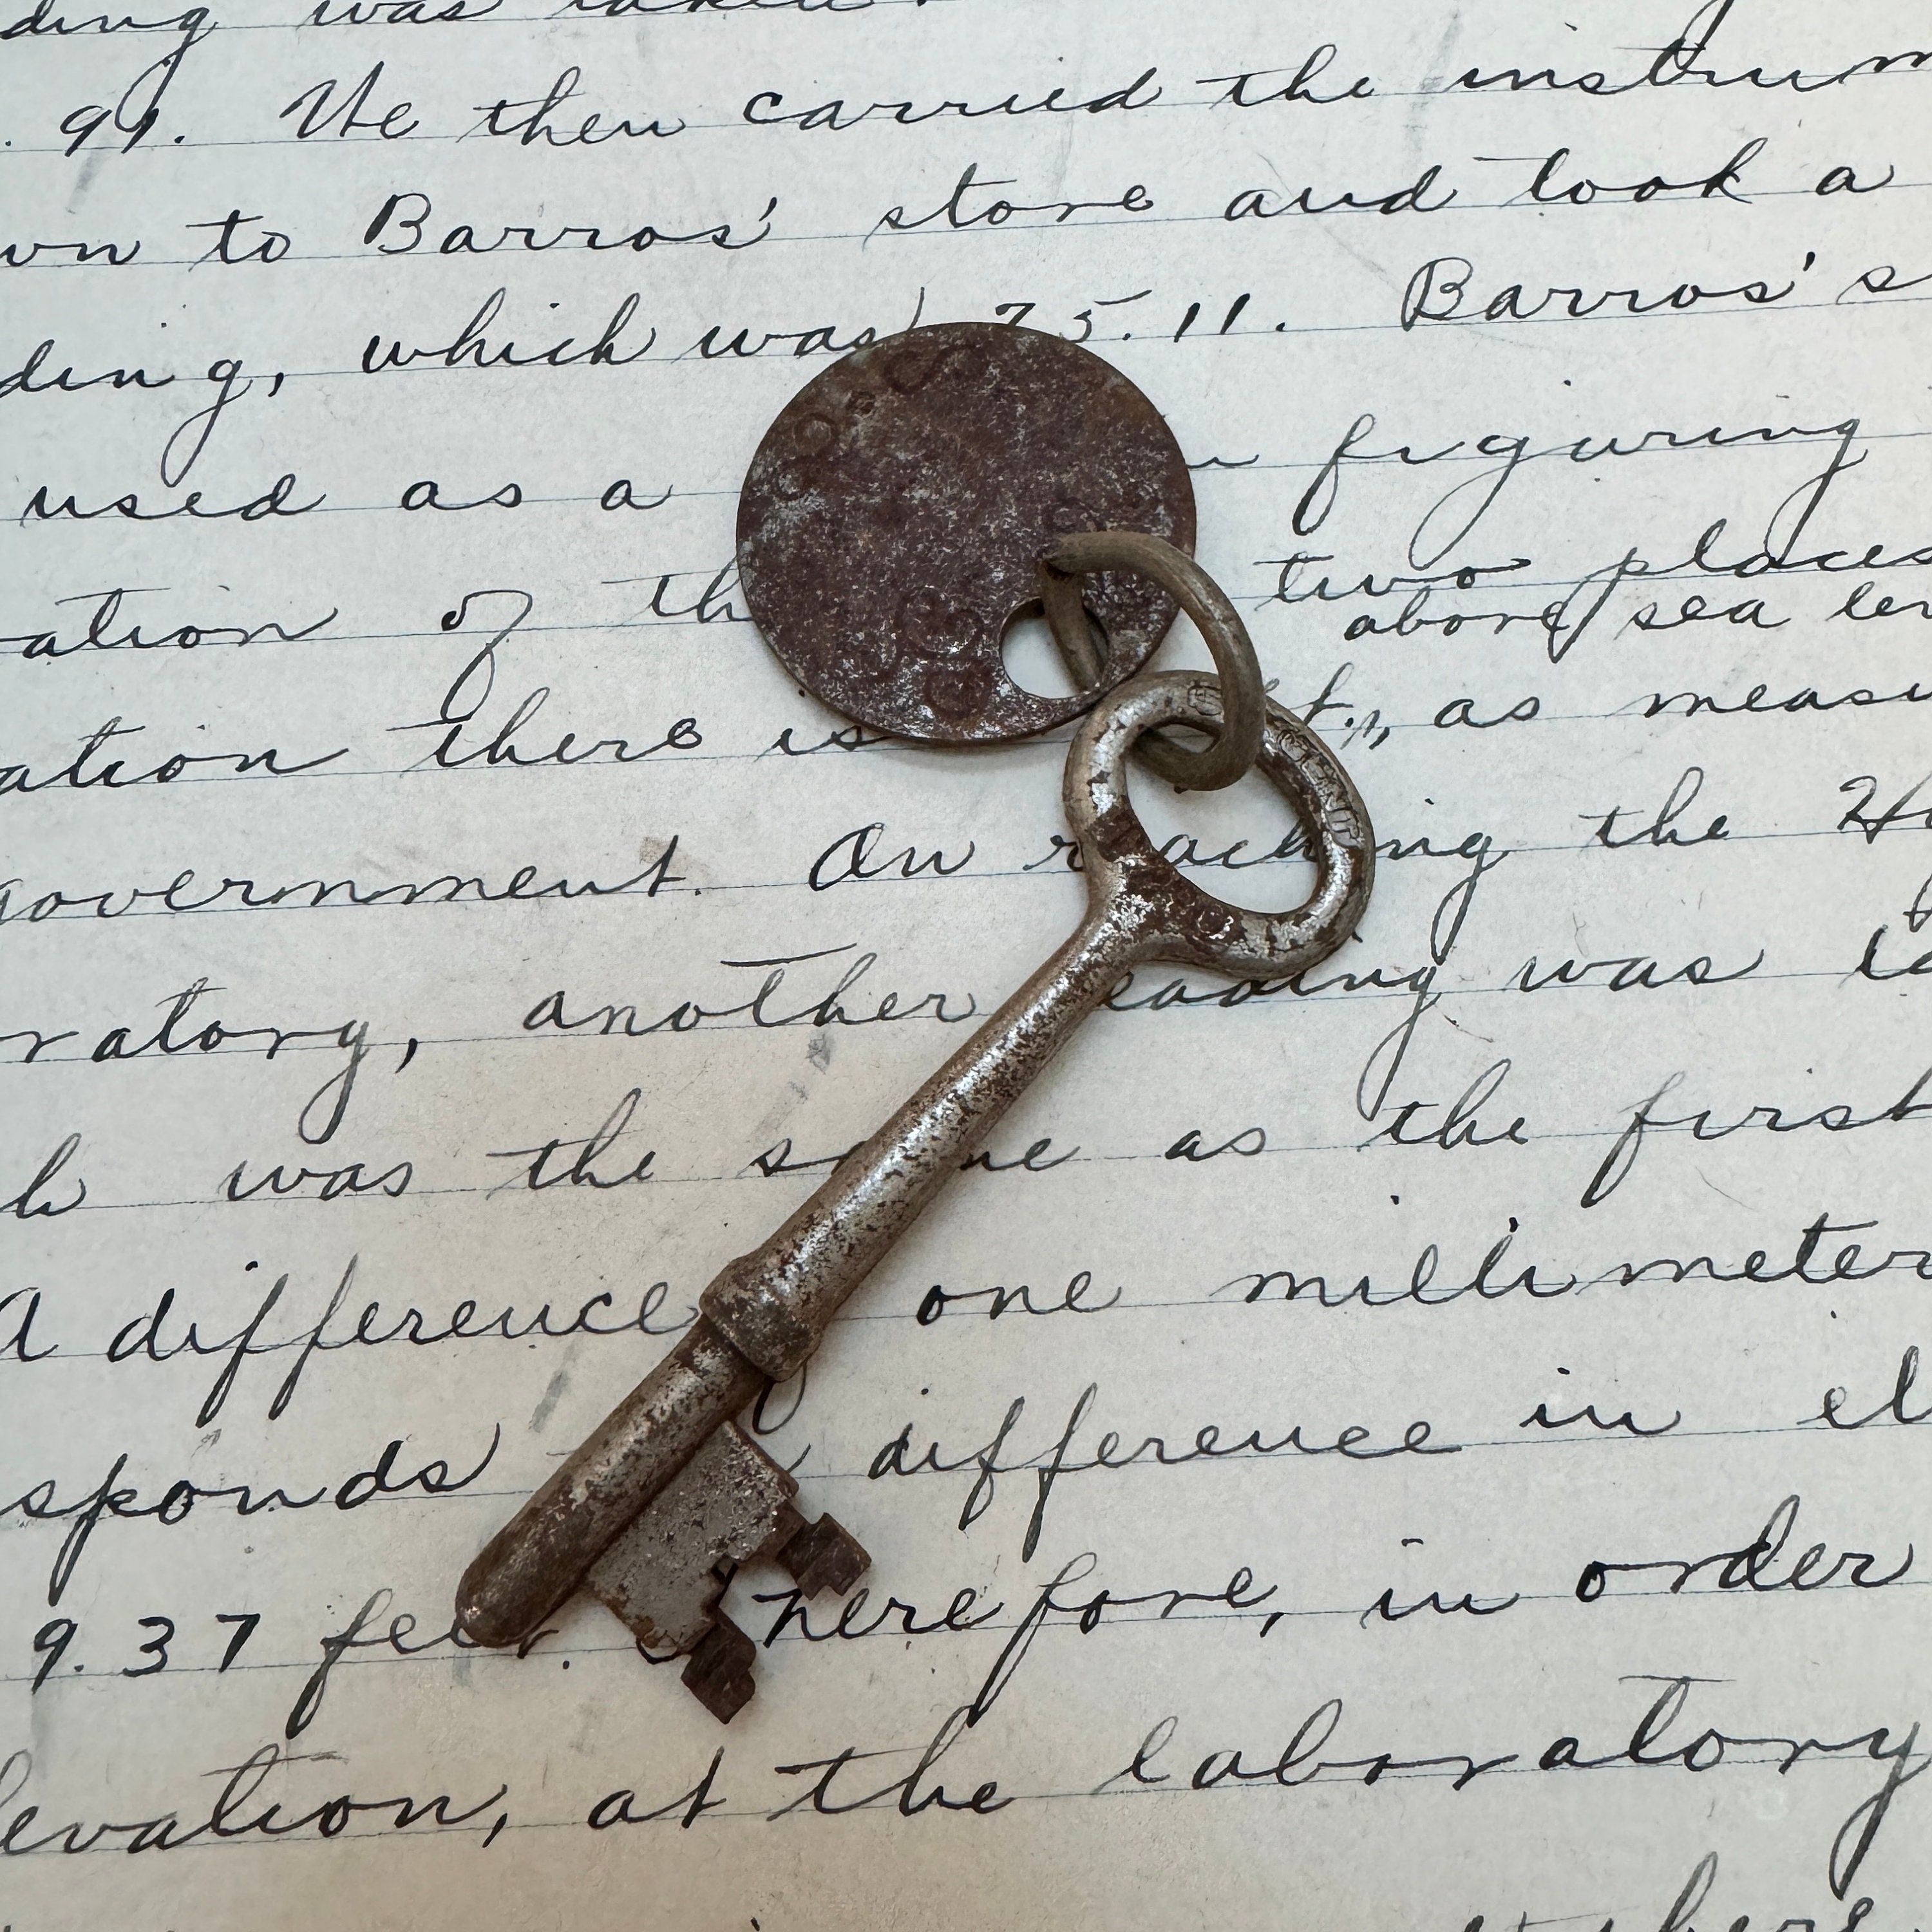 ding was taken
. 91. We then carried the instrum
wn to Barros' store and took a
ding, which was 75.11. Barros' s
used as a figuring
ation of th two places
above sea lev
ation there is ft., as measu
government. On reaching the
ratory, another reading was ta
h was the same as the first
A difference one millimeter
sponds difference in el
9.37 feet. Therefore, in order
levation, at the laboratory